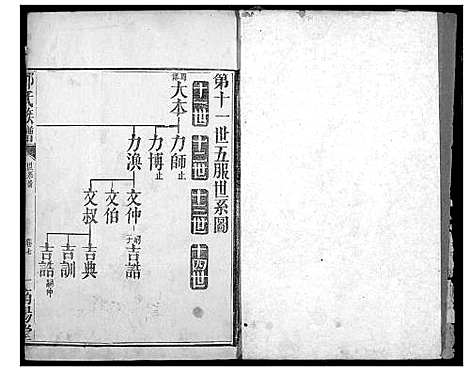 第十一世五服世系圖
十一世 十二世 十三世 十四世
大本
力師止
力博止
力渙
文仲 嗣子 吉誥
文伯
文叔
吉典
吉訓
吉誥 嗣仲
氏族譜
世系圖
卷七